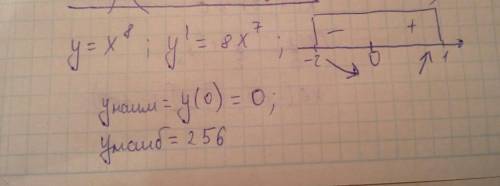 y = x⁸ ; y' = 8x⁷ ; − +
-2 0 1
yнаим = y(0) = 0;
yнаиб = 256